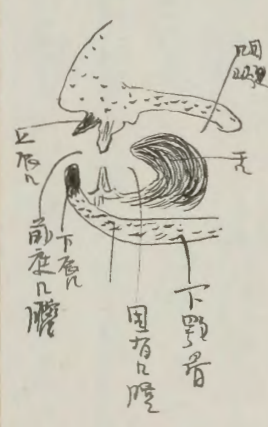 上唇
舌
前庭口腔
下唇
固有口腔
下顎骨